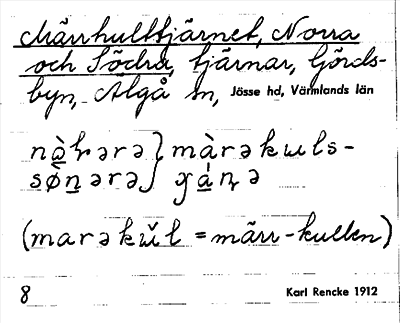 Märrhulttjärnet, Norra
och Södra, tjärnar, Görds-
byn, Älgå sn, Jösse hd, Värmlands län
màrəkɯls-
(marəkɯ̌l = märr-kullen)
8 Karl Rencke 1912